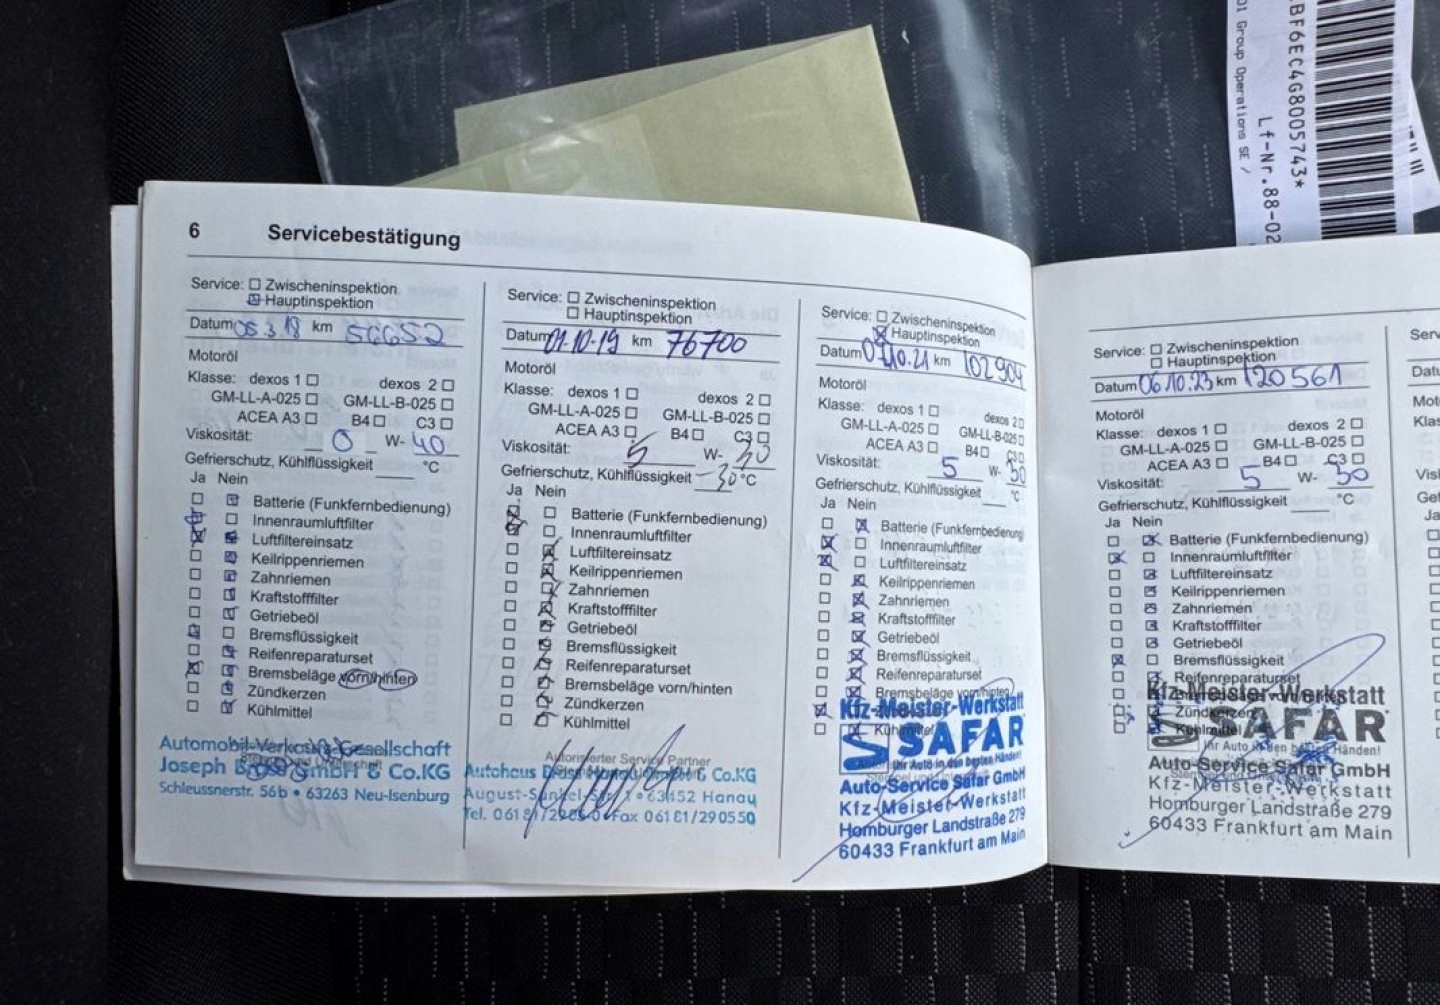 BF6EC4G8005743*
Group Operations SE /
Lf-Nr.88-02
6 Servicebestätigung
Service: Zwischeninspektion
Hauptinspektion
Datum 05.3.18 km 56652
Motoröl
Klasse: dexos 1 dexos 2
GM-LL-A-025 GM-LL-B-025
ACEA A3 B4 C3
Viskosität: 0 W- 40
Gefrierschutz, Kühlflüssigkeit °C
Ja Nein
Batterie (Funkfernbedienung)
Innenraumluftfilter
Luftfiltereinsatz
Keilrippenriemen
Zahnriemen
Kraftstofffilter
Getriebeöl
Bremsflüssigkeit
Reifenreparaturset
Bremsbeläge vorn/hinten
Zündkerzen
Kühlmittel
Automobil-Verkaufs-Gesellschaft
Joseph GmbH & Co.KG
Schleussnerstr. 56b • 63263 Neu-Isenburg
Service: Zwischeninspektion
Hauptinspektion
Datum 01.10.19 km 76700
Motoröl
Klasse: dexos 1 dexos 2
GM-LL-A-025 GM-LL-B-025
ACEA A3 B4 C3
Viskosität: 5 W- 30
Gefrierschutz, Kühlflüssigkeit -30 °C
Ja Nein
Batterie (Funkfernbedienung)
Innenraumluftfilter
Luftfiltereinsatz
Keilrippenriemen
Zahnriemen
Kraftstofffilter
Getriebeöl
Bremsflüssigkeit
Reifenreparaturset
Bremsbeläge vorn/hinten
Zündkerzen
Kühlmittel
Autorisierter Service Partner
Autohaus GmbH & Co.KG
63452 Hanau
Fax 06181/290550
Service: Zwischeninspektion
Hauptinspektion
Datum 07.10.21 km 102904
Motoröl
Klasse: dexos 1 dexos 2
GM-LL-A-025 GM-LL-B-025
ACEA A3 B4 C3
Viskosität: 5 W- 30
Gefrierschutz, Kühlflüssigkeit °C
Ja Nein
Batterie (Funkfernbedienung)
Innenraumluftfilter
Luftfiltereinsatz
Keilrippenriemen
Zahnriemen
Kraftstofffilter
Getriebeöl
Bremsflüssigkeit
Reifenreparaturset
Bremsbeläge vorn/hinten
Kühlmittel
Kfz-Meister-Werkstatt
SAFAR
Ihr Auto in den besten Händen!
Auto-Service Safar GmbH
Kfz-Meister-Werkstatt
Homburger Landstraße 279
60433 Frankfurt am Main
Service: Zwischeninspektion
Hauptinspektion
Datum 06.10.23 km 120561
Motoröl
Klasse: dexos 1 dexos 2
GM-LL-A-025 GM-LL-B-025
ACEA A3 B4 C3
Viskosität: 5 W- 30
Gefrierschutz, Kühlflüssigkeit °C
Ja Nein
Batterie (Funkfernbedienung)
Innenraumluftfilter
Luftfiltereinsatz
Keilrippenriemen
Zahnriemen
Kraftstofffilter
Getriebeöl
Bremsflüssigkeit
Reifenreparaturset
Zündkerzen
Kühlmittel
Kfz-Meister-Werkstatt
SAFAR
Ihr Auto in den besten Händen!
Auto-Service Safar GmbH
Kfz-Meister-Werkstatt
Homburger Landstraße 279
60433 Frankfurt am Main